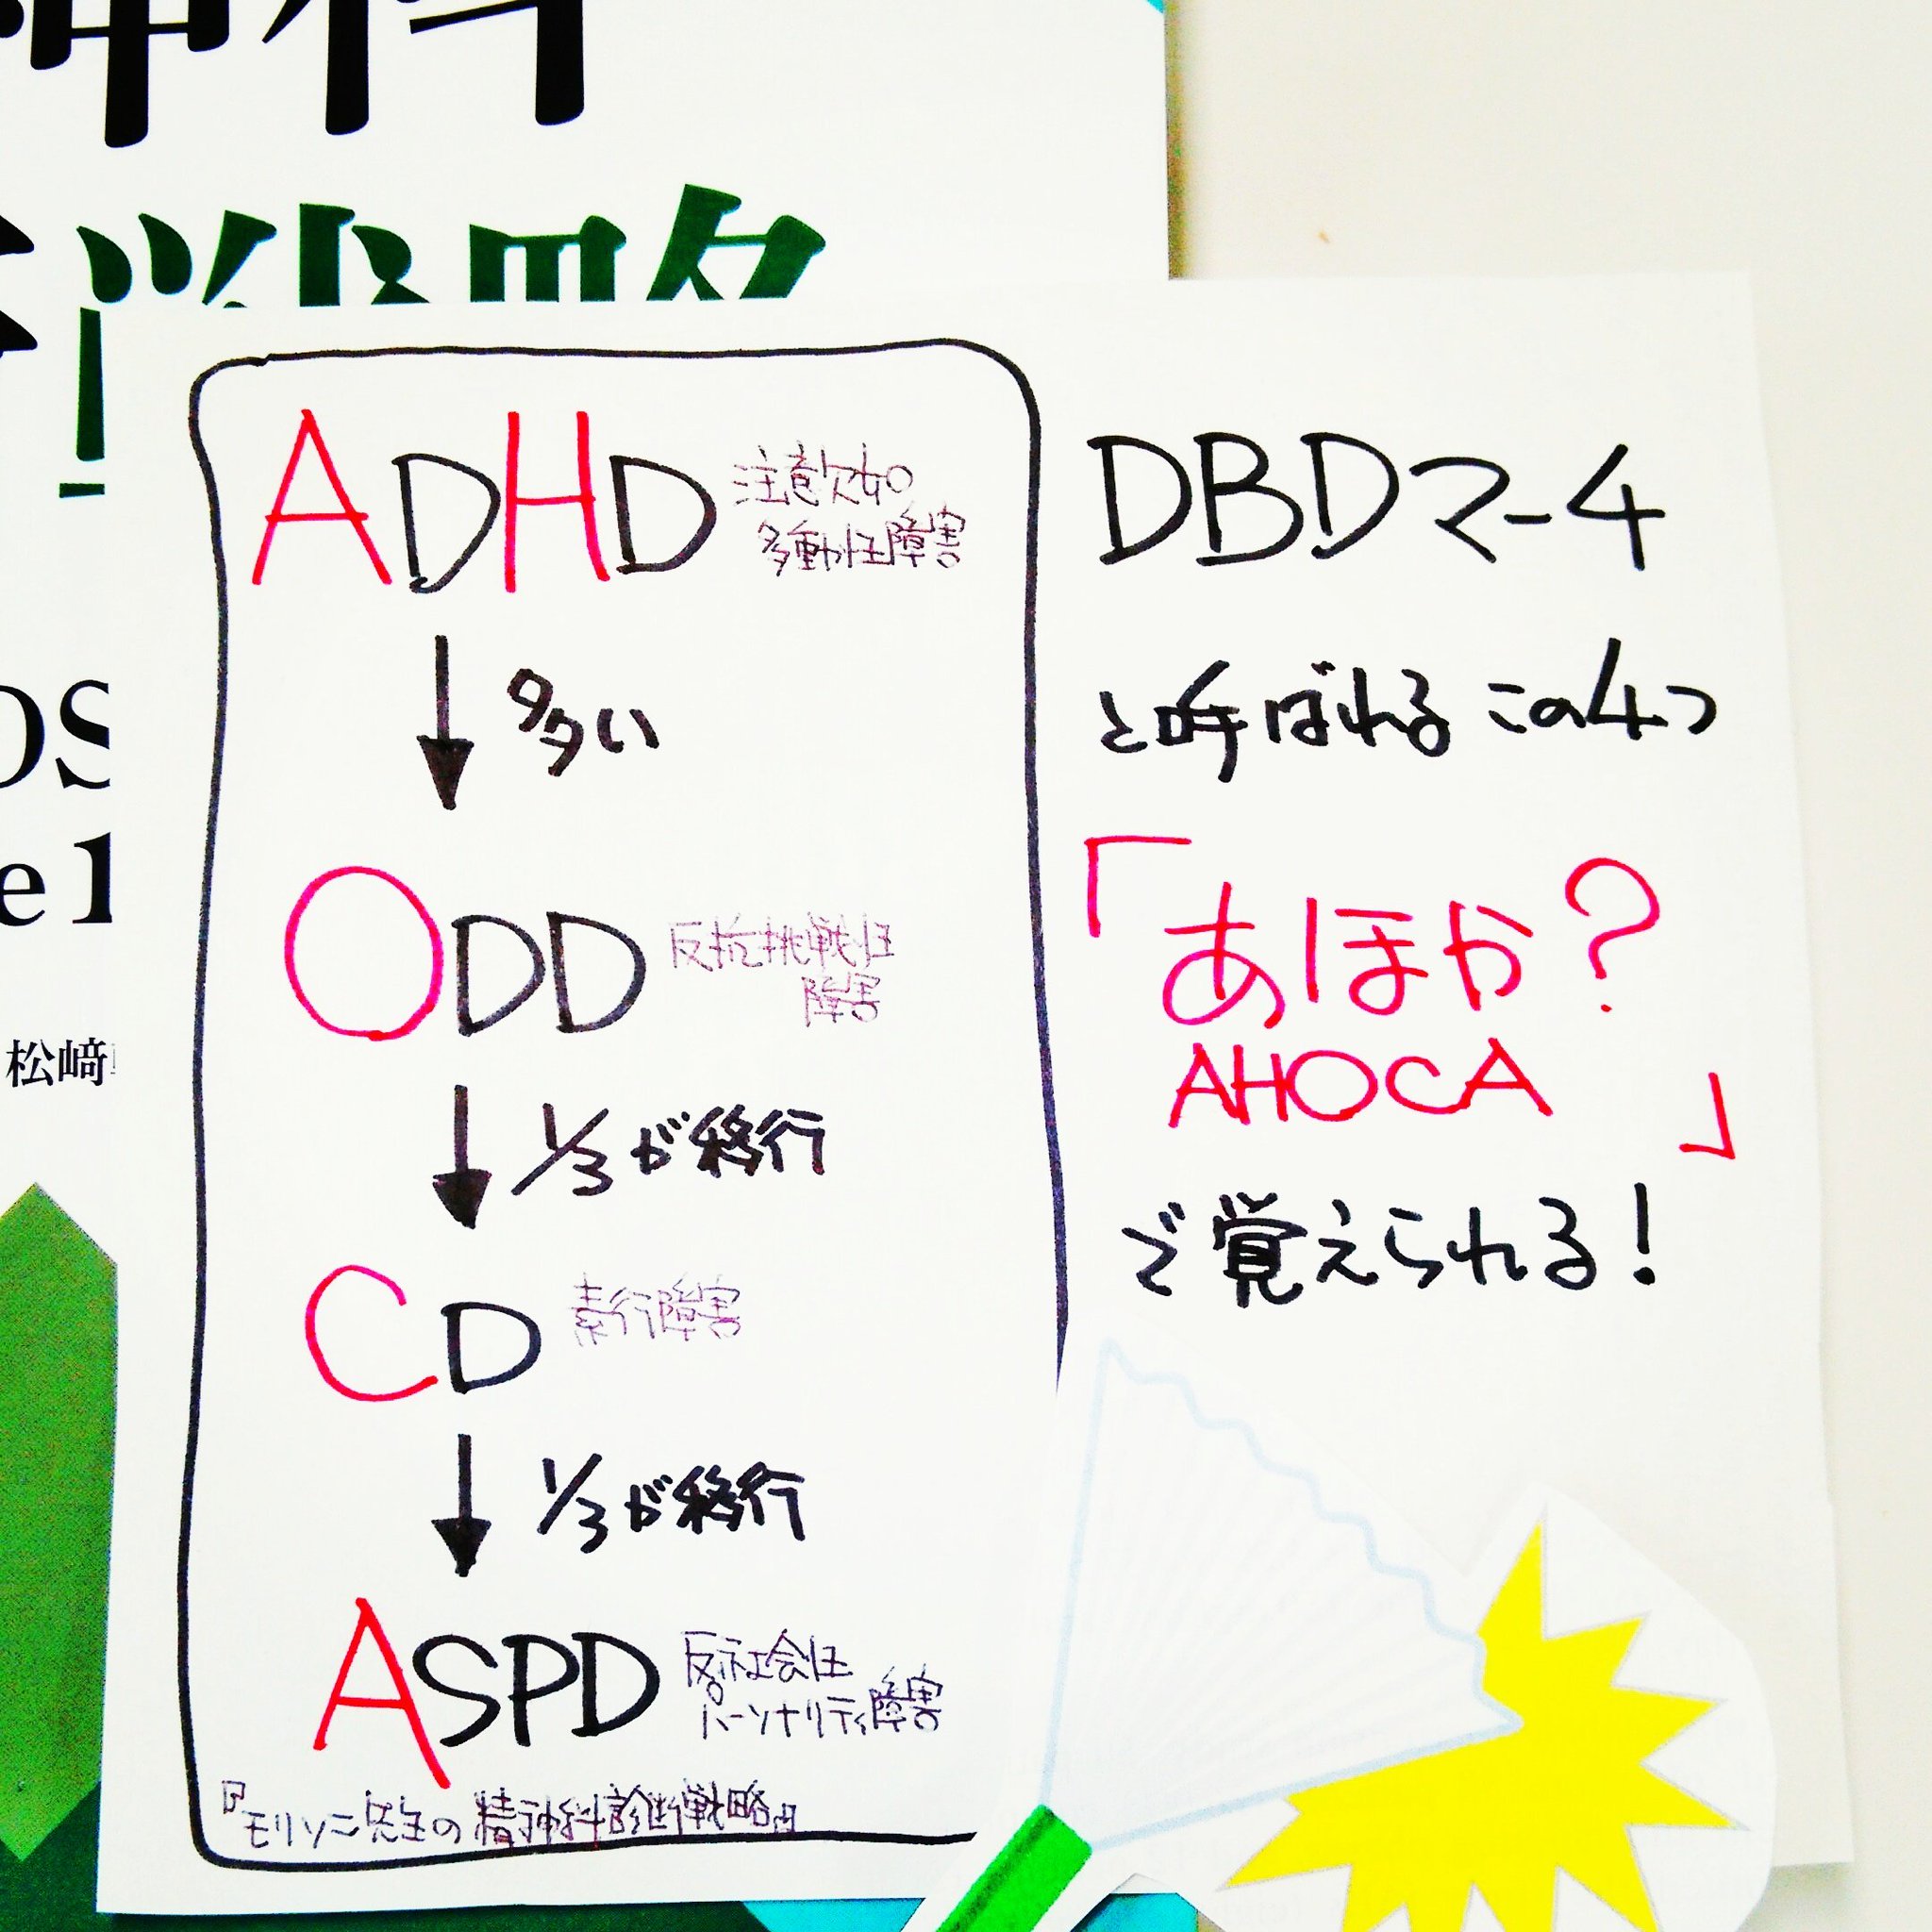 神科
戦略
OS
e 1
松﨑
ADHD 注意欠如
多動性障害
多い
ODD 反抗挑戦性
障害
1/3が移行
CD 素行障害
1/3が移行
ASPD 反社会性
パーソナリティ障害
『モリソン先生の精神科診断戦略』
DBDマーチ
と呼ばれるこの4つ
「あほか?
AHOCA」
で覚えられる!